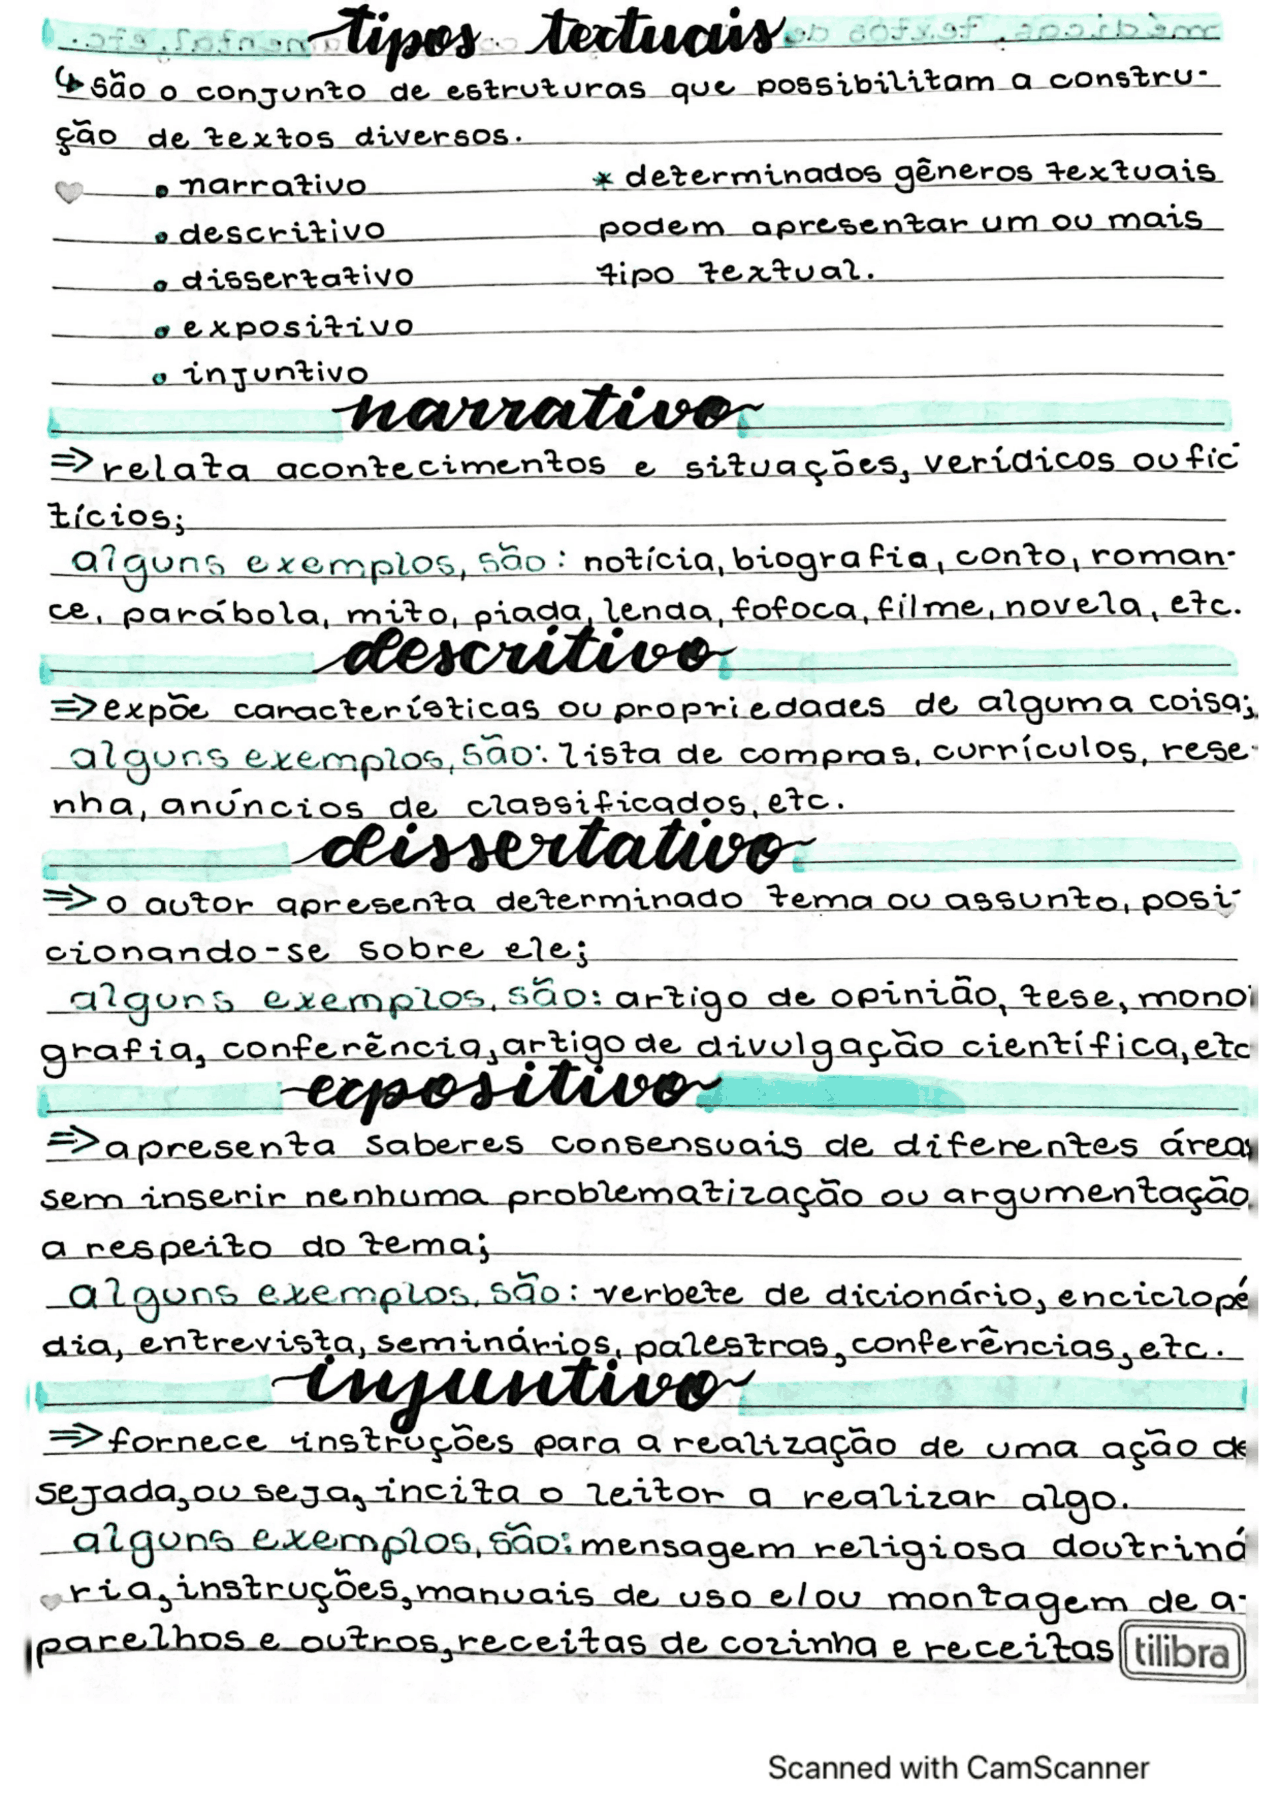 tipos textuais
↳ são o conjunto de estruturas que possibilitam a constru-
ção de textos diversos.
• narrativo
• descritivo
• dissertativo
• expositivo
• injuntivo
* determinados gêneros textuais
podem apresentar um ou mais
tipo textual.
narrativo
⇒ relata acontecimentos e situações, verídicos ou fic-
tícios;
alguns exemplos, são: notícia, biografia, conto, roman-
ce, parábola, mito, piada, lenda, fofoca, filme, novela, etc.
descritivo
⇒ expõe características ou propriedades de alguma coisa;
alguns exemplos, são: lista de compras, currículos, rese-
nha, anúncios de classificados, etc.
dissertativo
⇒ o autor apresenta determinado tema ou assunto, posi-
cionando-se sobre ele;
alguns exemplos, são: artigo de opinião, tese, mono-
grafia, conferência, artigo de divulgação científica, etc
expositivo
⇒ apresenta saberes consensuais de diferentes áreas
sem inserir nenhuma problematização ou argumentação
a respeito do tema;
alguns exemplos, são: verbete de dicionário, enciclopé
dia, entrevista, seminários, palestras, conferências, etc.
injuntivo
⇒ fornece instruções para a realização de uma ação de
sejada, ou seja, incita o leitor a realizar algo.
alguns exemplos, são: mensagem religiosa doutriná
ria, instruções, manuais de uso e/ou montagem de a-
parelhos e outros, receitas de cozinha e receitas
tilibra
Scanned with CamScanner